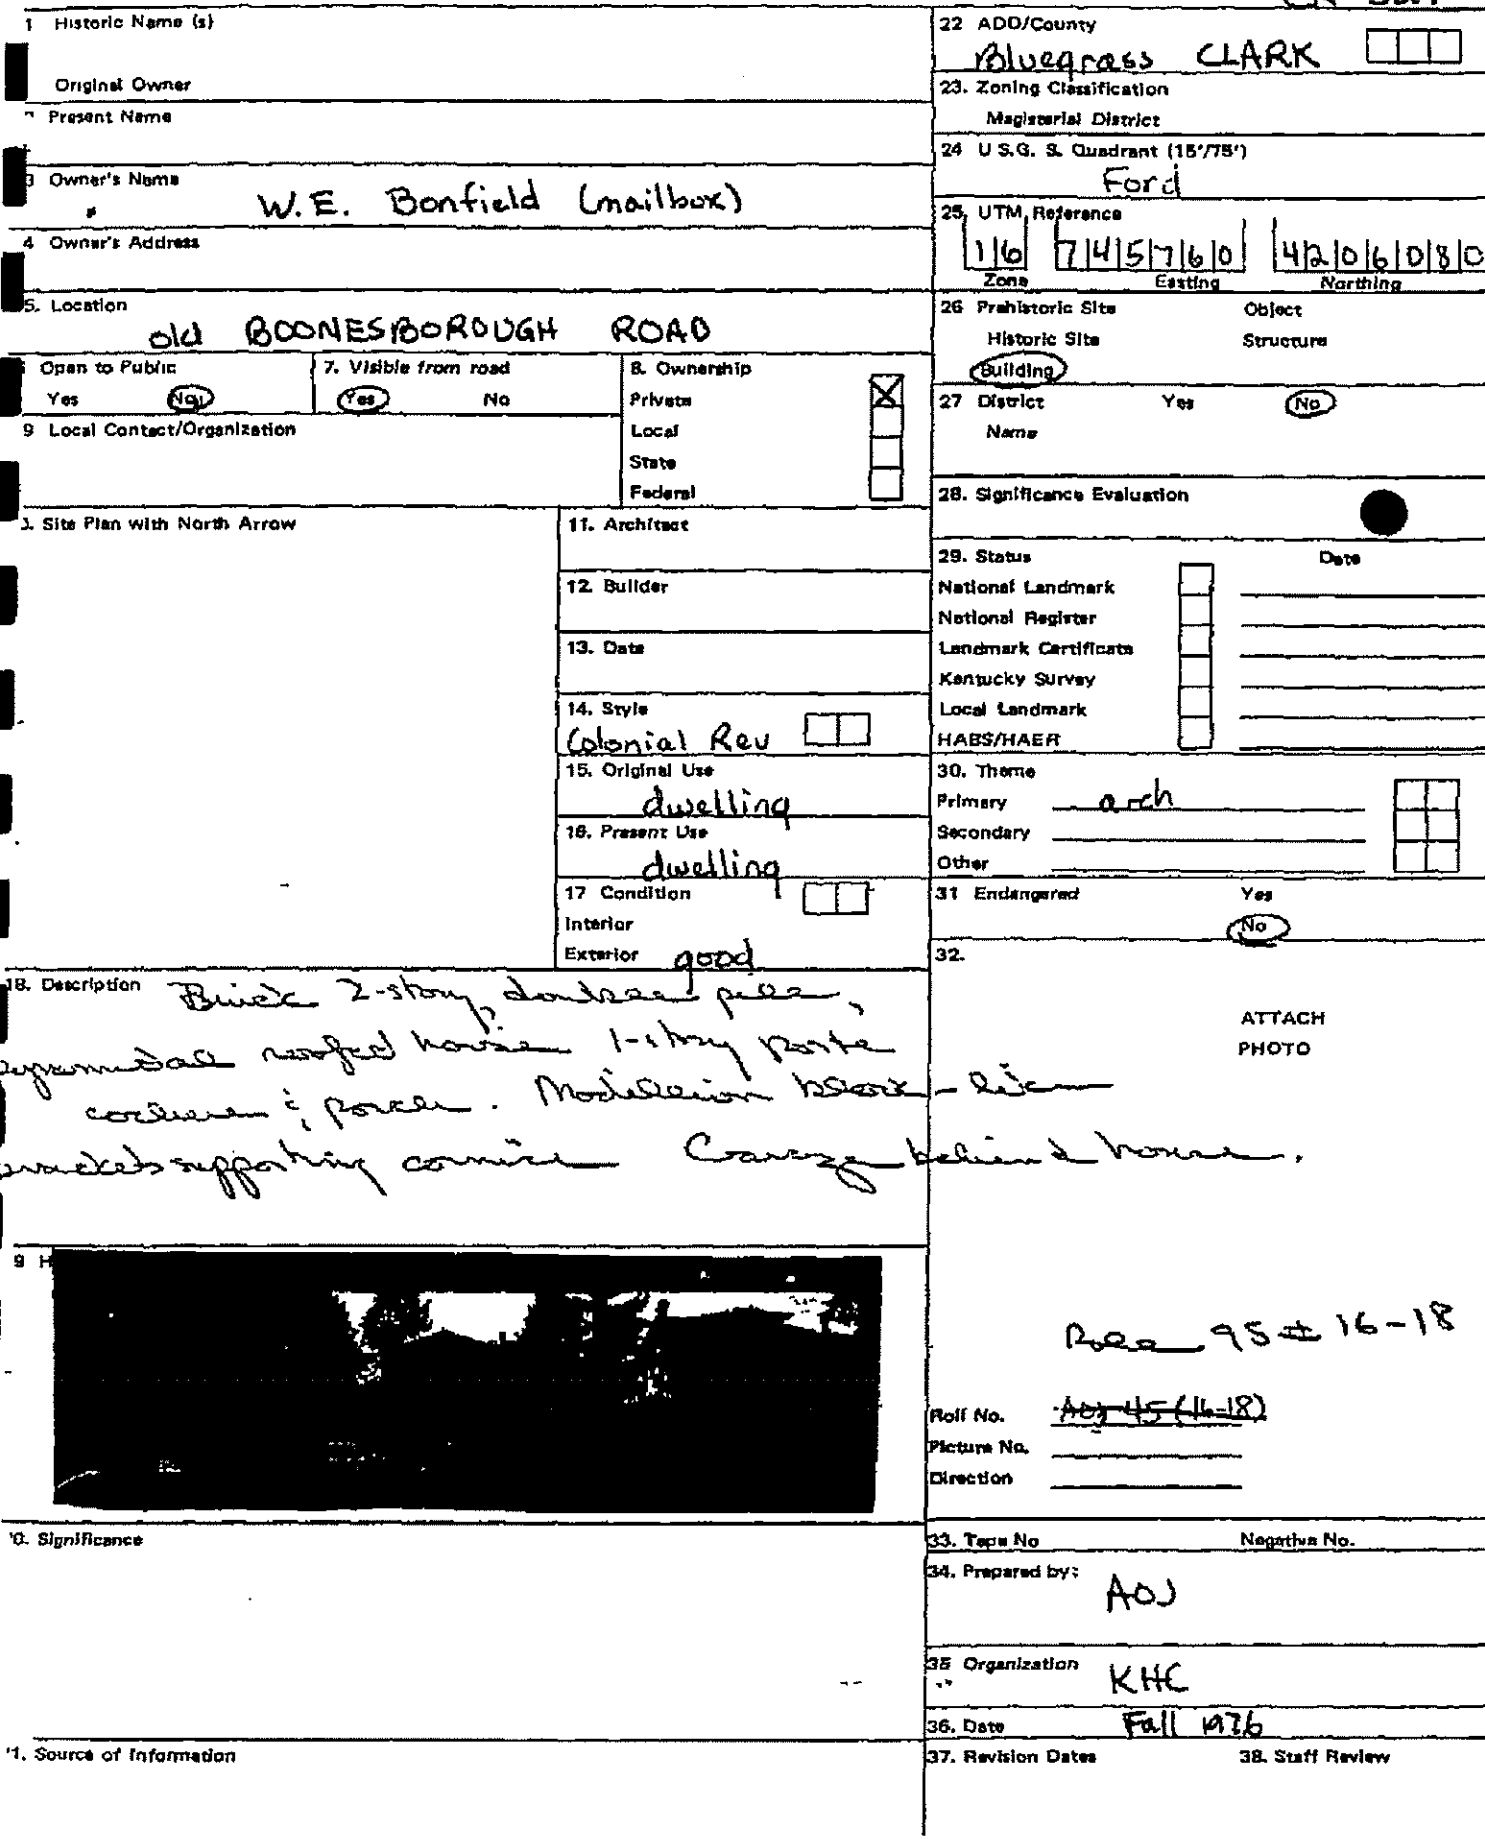 1 Historic Name (s)
Original Owner
Present Name
3 Owner's Name
W.E. Bonfield (mailbox)
4 Owner's Address
5. Location
old BOONESBOROUGH ROAD
Open to Public
Yes No
7. Visible from road
Yes No
8. Ownership
Private
Local
State
Federal
9 Local Contact/Organization
. Site Plan with North Arrow
11. Architect
12. Builder
13. Date
14. Style
Colonial Rev
15. Original Use
dwelling
16. Present Use
dwelling
17 Condition
Interior
Exterior good
18. Description Brick 2-story, double pile,
pyramidal roofed house 1-story porte
cochere & porch. Modillion block-like
brackets supporting cornice Garage behind house.
9 H
0. Significance
1. Source of Information
22 ADD/County
Bluegrass CLARK
23. Zoning Classification
Magisterial District
24 U.S.G. S. Quadrant (15'/75')
Ford
25. UTM Reference
16 745760 4206080
Zone Easting Northing
26 Prehistoric Site Object
Historic Site Structure
Building
27 District Yes No
Name
28. Significance Evaluation
29. Status Date
National Landmark
National Register
Landmark Certificate
Kentucky Survey
Local Landmark
HABS/HAER
30. Theme
Primary arch
Secondary
Other
31 Endangered Yes
No
32.
ATTACH
PHOTO
Roll 95 # 16-18
Roll No. AOJ 45 (16-18)
Picture No.
Direction
33. Tape No Negative No.
34. Prepared by: AOJ
35 Organization KHC
36. Date Fall 1976
37. Revision Dates 38. Staff Review